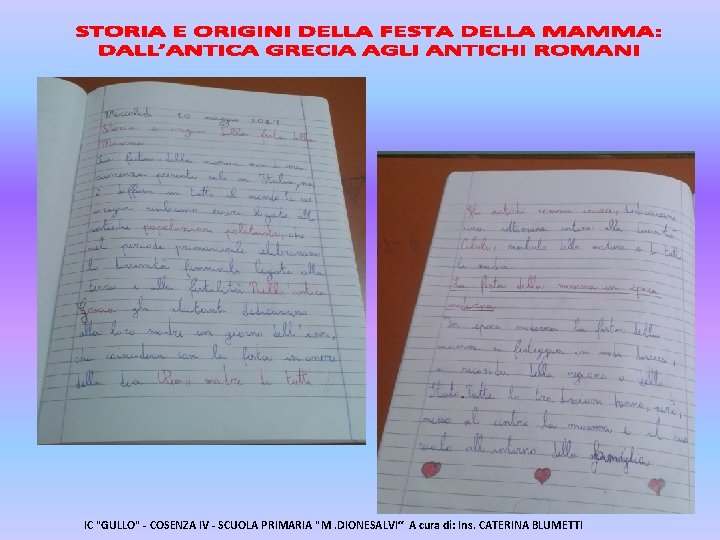 STORIA E ORIGINI DELLA FESTA DELLA MAMMA:
DALL'ANTICA GRECIA AGLI ANTICHI ROMANI
Mercoledì 10 maggio 2017
Storia e origini della festa della
Mamma.
La festa della mamma non è una
ricorrenza presente solo in Italia, ma
è diffusa in tutto il mondo. Le sue
origini sembrano essere legate alle
antiche popolazioni politeiste, che
nel periodo primaverile celebravano
le divinità femminili legate alla
terra e alla fertilità. Nell'antica
Grecia gli abitanti dedicavano
alla loro madre un giorno dell'anno,
che coincideva con la festa in onore
della dea Rea, madre di tutti gli
Gli antichi romani invece, dedicavano
una settimana intera alla divinità
Cibele, simbolo della natura e di tutte
le madri.
La festa della mamma in epoca
moderna
In epoca moderna la festa della
mamma si festeggia in modi diversi,
a seconda della regione o dello
Stato. Tutte le tradizioni hanno, però,
messo al centro la mamma e il suo
ruolo all'interno della famiglia
IC "GULLO" - COSENZA IV - SCUOLA PRIMARIA "M .DIONESALVI" A cura di: Ins. CATERINA BLUMETTI